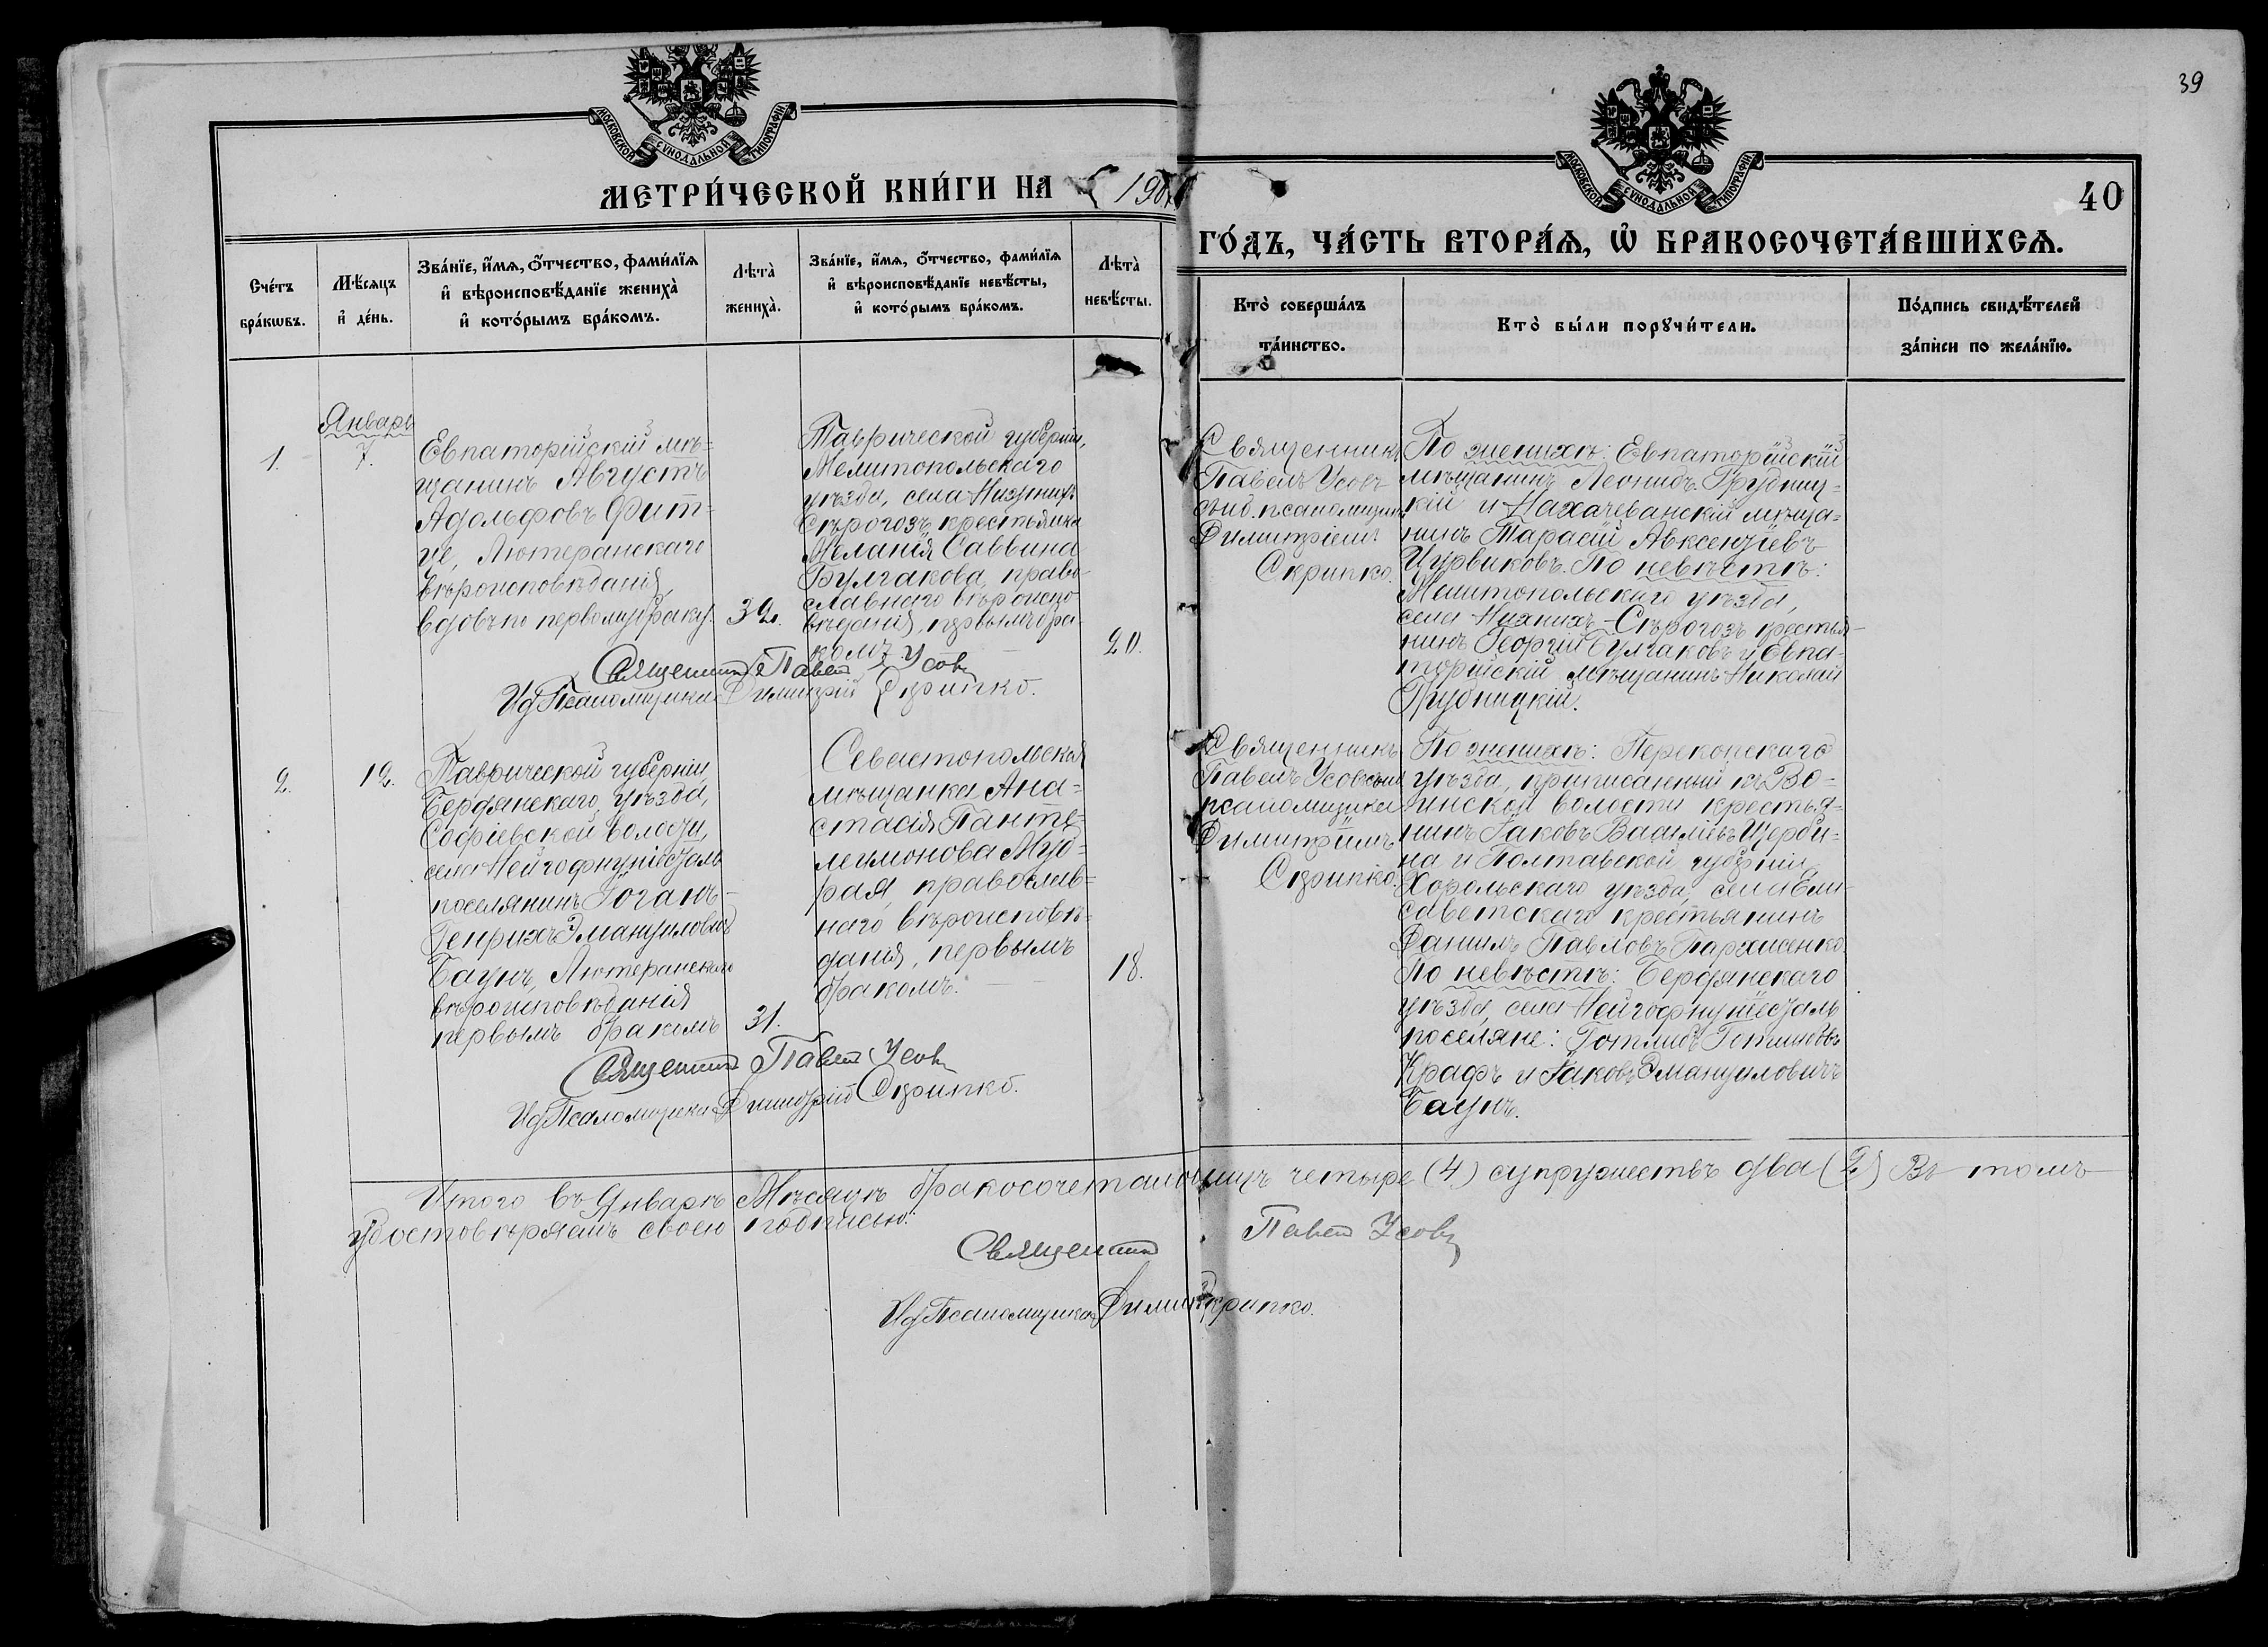 39
МОСКОВСКОЙ СѴНОДАЛЬНОЙ ТИПОГРАФІИ
МОСКОВСКОЙ СѴНОДАЛЬНОЙ ТИПОГРАФІИ
МЕТРИ́ЧЕСКОЙ КНИ́ГИ НА 190
40
ГО́ДЪ, ЧА́СТЬ ВТОРА́Я, Ѽ БРАКОСОЧЕТА́ВШИХСЯ.
Сче́тъ
бра́кѡвъ.
Мѣ́сяцъ
и҆ де́нь.
Зва́нїе, и҆́мя, ѻ҆́тчество, фами́лїя
и҆ вѣроисповѣ́данїе жениха̀
и҆ кото́рымъ бра́комъ.
Лѣта̀
жениха̀.
Зва́нїе, и҆́мя, ѻ҆́тчество, фами́лїя
и҆ вѣроисповѣ́данїе невѣ́сты,
и҆ кото́рымъ бра́комъ.
Лѣта̀
невѣ́сты.
Кто̀ соверша́лъ
та́инство.
Кто̀ бы́ли порꙋчи́тели.
По́дпись свидѣ́телей
за́писи по жела́нїю.
1.
Январь
7.
Евпаторійскій мѣ-
щанинъ Августъ
Адольфовъ Фит-
че, Лютеранскаго
вѣроисповѣданія,
вдовъ по первому браку.
32.
Таврической губерніи,
Мелитопольскаго
уѣзда, села Нижнихъ
Сѣрогозъ крестьянка
Меланія Саввина
Булгакова, право-
славнаго вѣроиспо-
вѣданія, первымъ бра-
комъ.
20.
Священникъ Павелъ Усовъ
Ид Псаломщика Димитрій Скрипко.
Священникъ
Павелъ Усовъ
съ и.д. псаломщика
Димитріемъ
Скрипко.
По женихѣ: Евпаторійскій
мѣщанинъ Леонидъ Грудниц-
кій и Нахачеванскій мѣща-
нинъ Тарасій Авксентіевъ
Цурвиковъ. По невѣстѣ:
Мелитопольскаго уѣзда,
села Нижнихъ-Сѣрогозъ крестья-
нинъ Георгій Булгаковъ и Евпа-
торійскій мѣщанинъ Николай
Грудницкій.
2.
12.
Таврической губерніи,
Бердянскаго уѣзда,
Софіевской волости,
села Нейгофнунгсталь
поселянинъ Іоганъ-
Генрихъ Эмануиловичъ
Баунъ, Лютеранскаго
вѣроисповѣданія
первымъ бракомъ
31.
Севастопольская
мѣщанка Ана-
стасія Панте-
леимонова Муд-
рая, православ-
наго вѣроисповѣ-
данія, первымъ
бракомъ.
18.
Священникъ Павелъ Усовъ
Ид Псаломщика Димитрій Скрипко.
Священникъ
Павелъ Усовъ съ и.д.
псаломщика
Димитріемъ
Скрипко.
По женихѣ: Перекопскаго
уѣзда, приписанный къ Во-
инской волости крестья-
нинъ Іаковъ Василіевъ Щерби-
на и Полтавской губерніи,
Хорольскаго уѣзда, села Ели-
саветскаго крестьянинъ
Даніилъ Павловъ Пархисенко.
По невѣстѣ: Бердянскаго
уѣзда, села Нейгофнунгсталь
поселяне: Готлибъ Готлибовъ
Крафъ и Іаковъ Эмануиловичъ
Баунъ.
Итого въ Январѣ Мѣсяцѣ бракосочетавшихъ четыре (4) супружествъ два (2) Въ томъ
удостовѣряемъ своею подписью:
Священникъ Павелъ Усовъ
Ид Псаломщика Димитрій Скрипко.